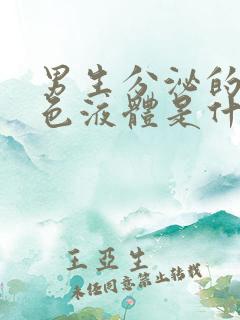 男生分泌的
色液體是什
王亞生
未经同意禁止转载